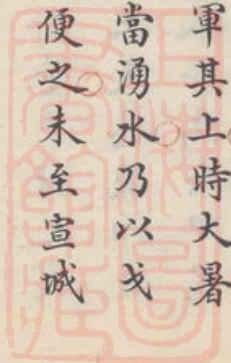 軍其上時大暑
當湧水乃以戈
便之未至宣城